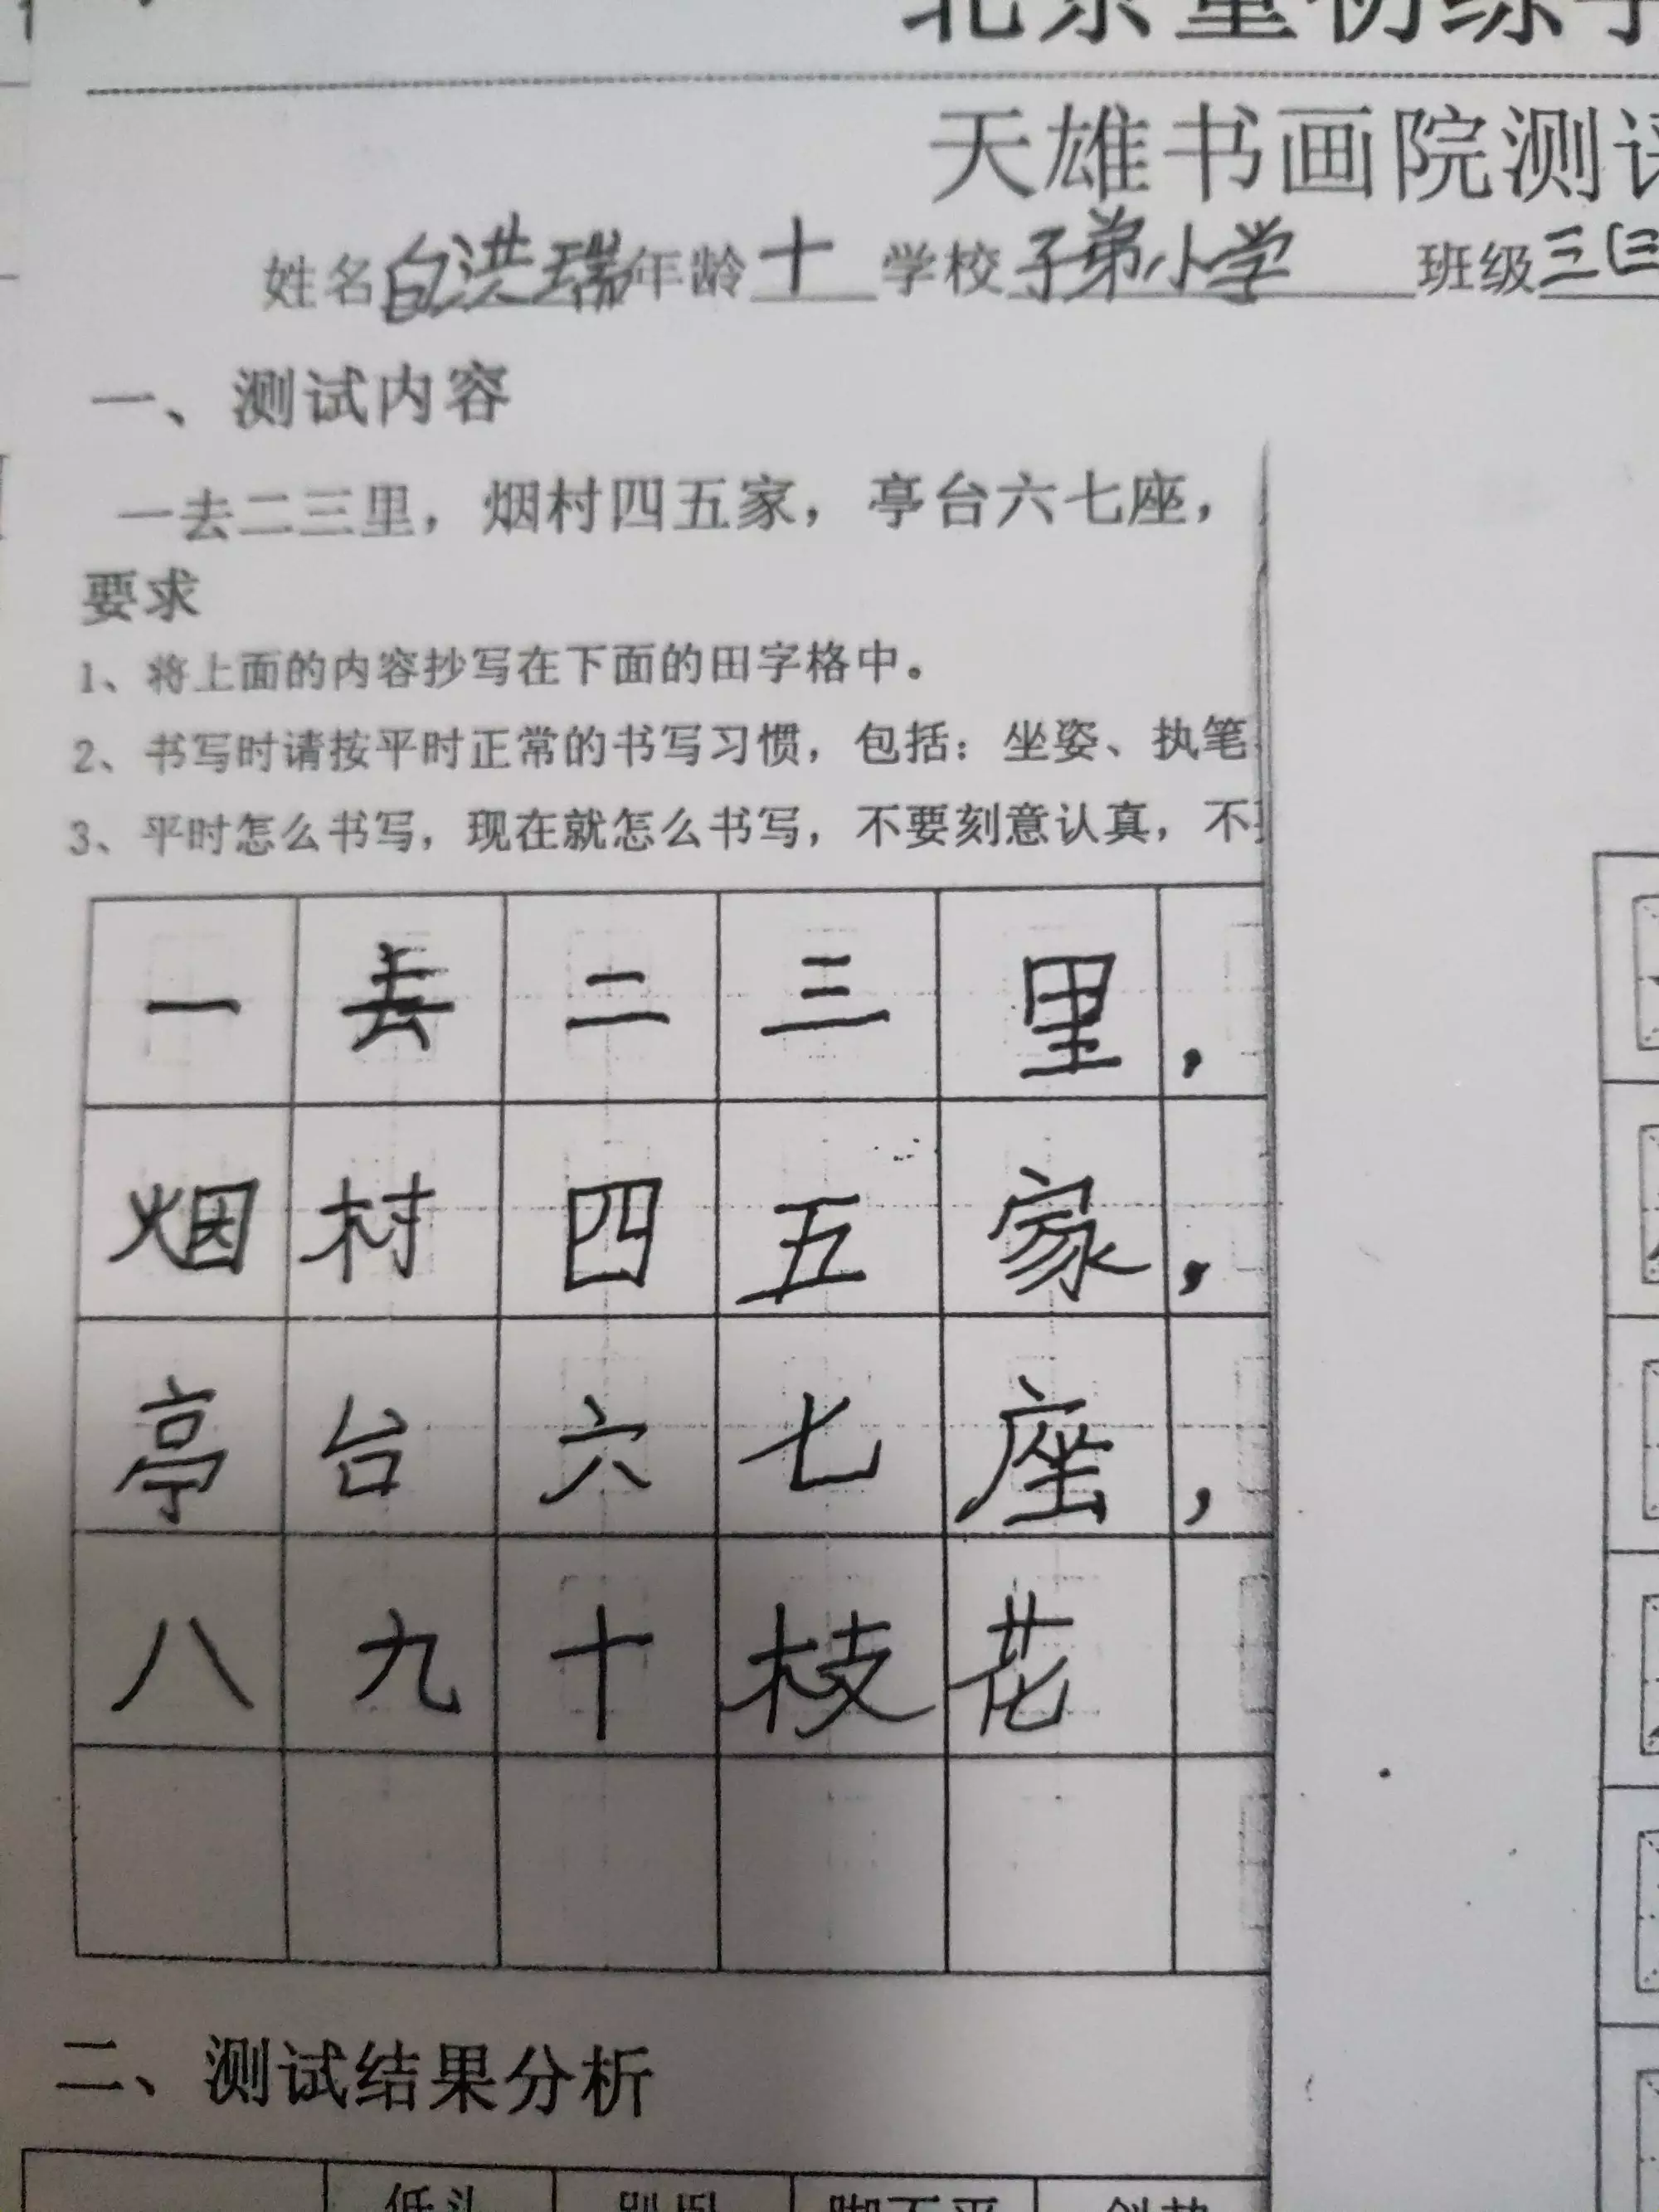 天雄书画院测评
姓名白洪瑞年龄十 学校子弟小学 班级三(三
一、测试内容
一去二三里，烟村四五家，亭台六七座，
要求
1、将上面的内容抄写在下面的田字格中。
2、书写时请按平时正常的书写习惯，包括：坐姿、执笔
3、平时怎么书写，现在就怎么书写，不要刻意认真，不
一去二三里，
烟村四五家，
亭台六七座，
八九十枝花
二、测试结果分析
低头